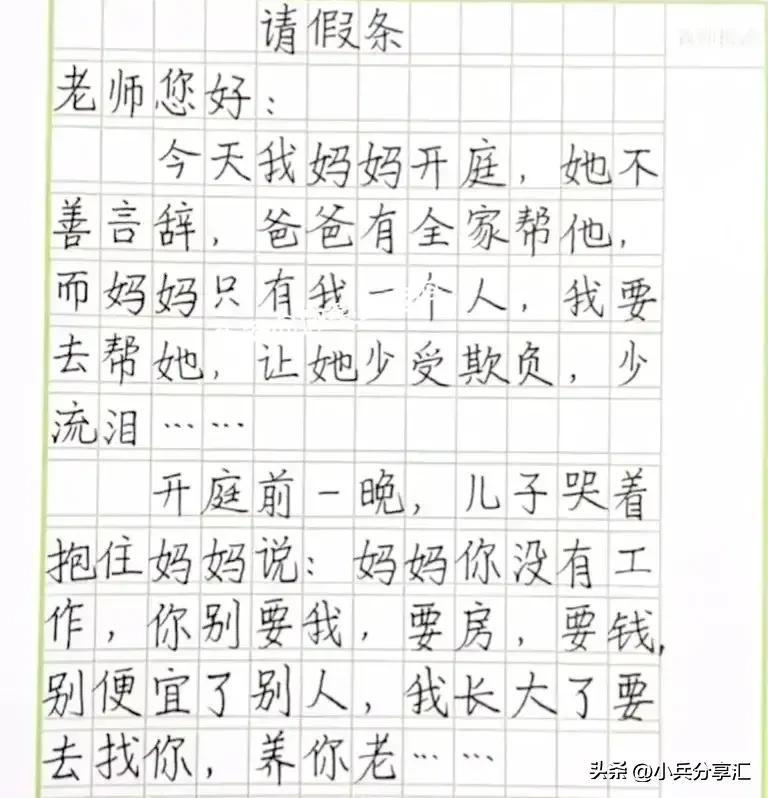 请假条
老师您好：
今天我妈妈开庭，她不
善言辞，爸爸有全家帮他，
而妈妈只有我一个人，我要
去帮她，让她少受欺负，少
流泪……
开庭前一晚，儿子哭着
抱住妈妈说：妈妈你没有工
作，你别要我，要房，要钱，
别便宜了别人，我长大了要
去找你，养你老……
头条 @小兵分享汇